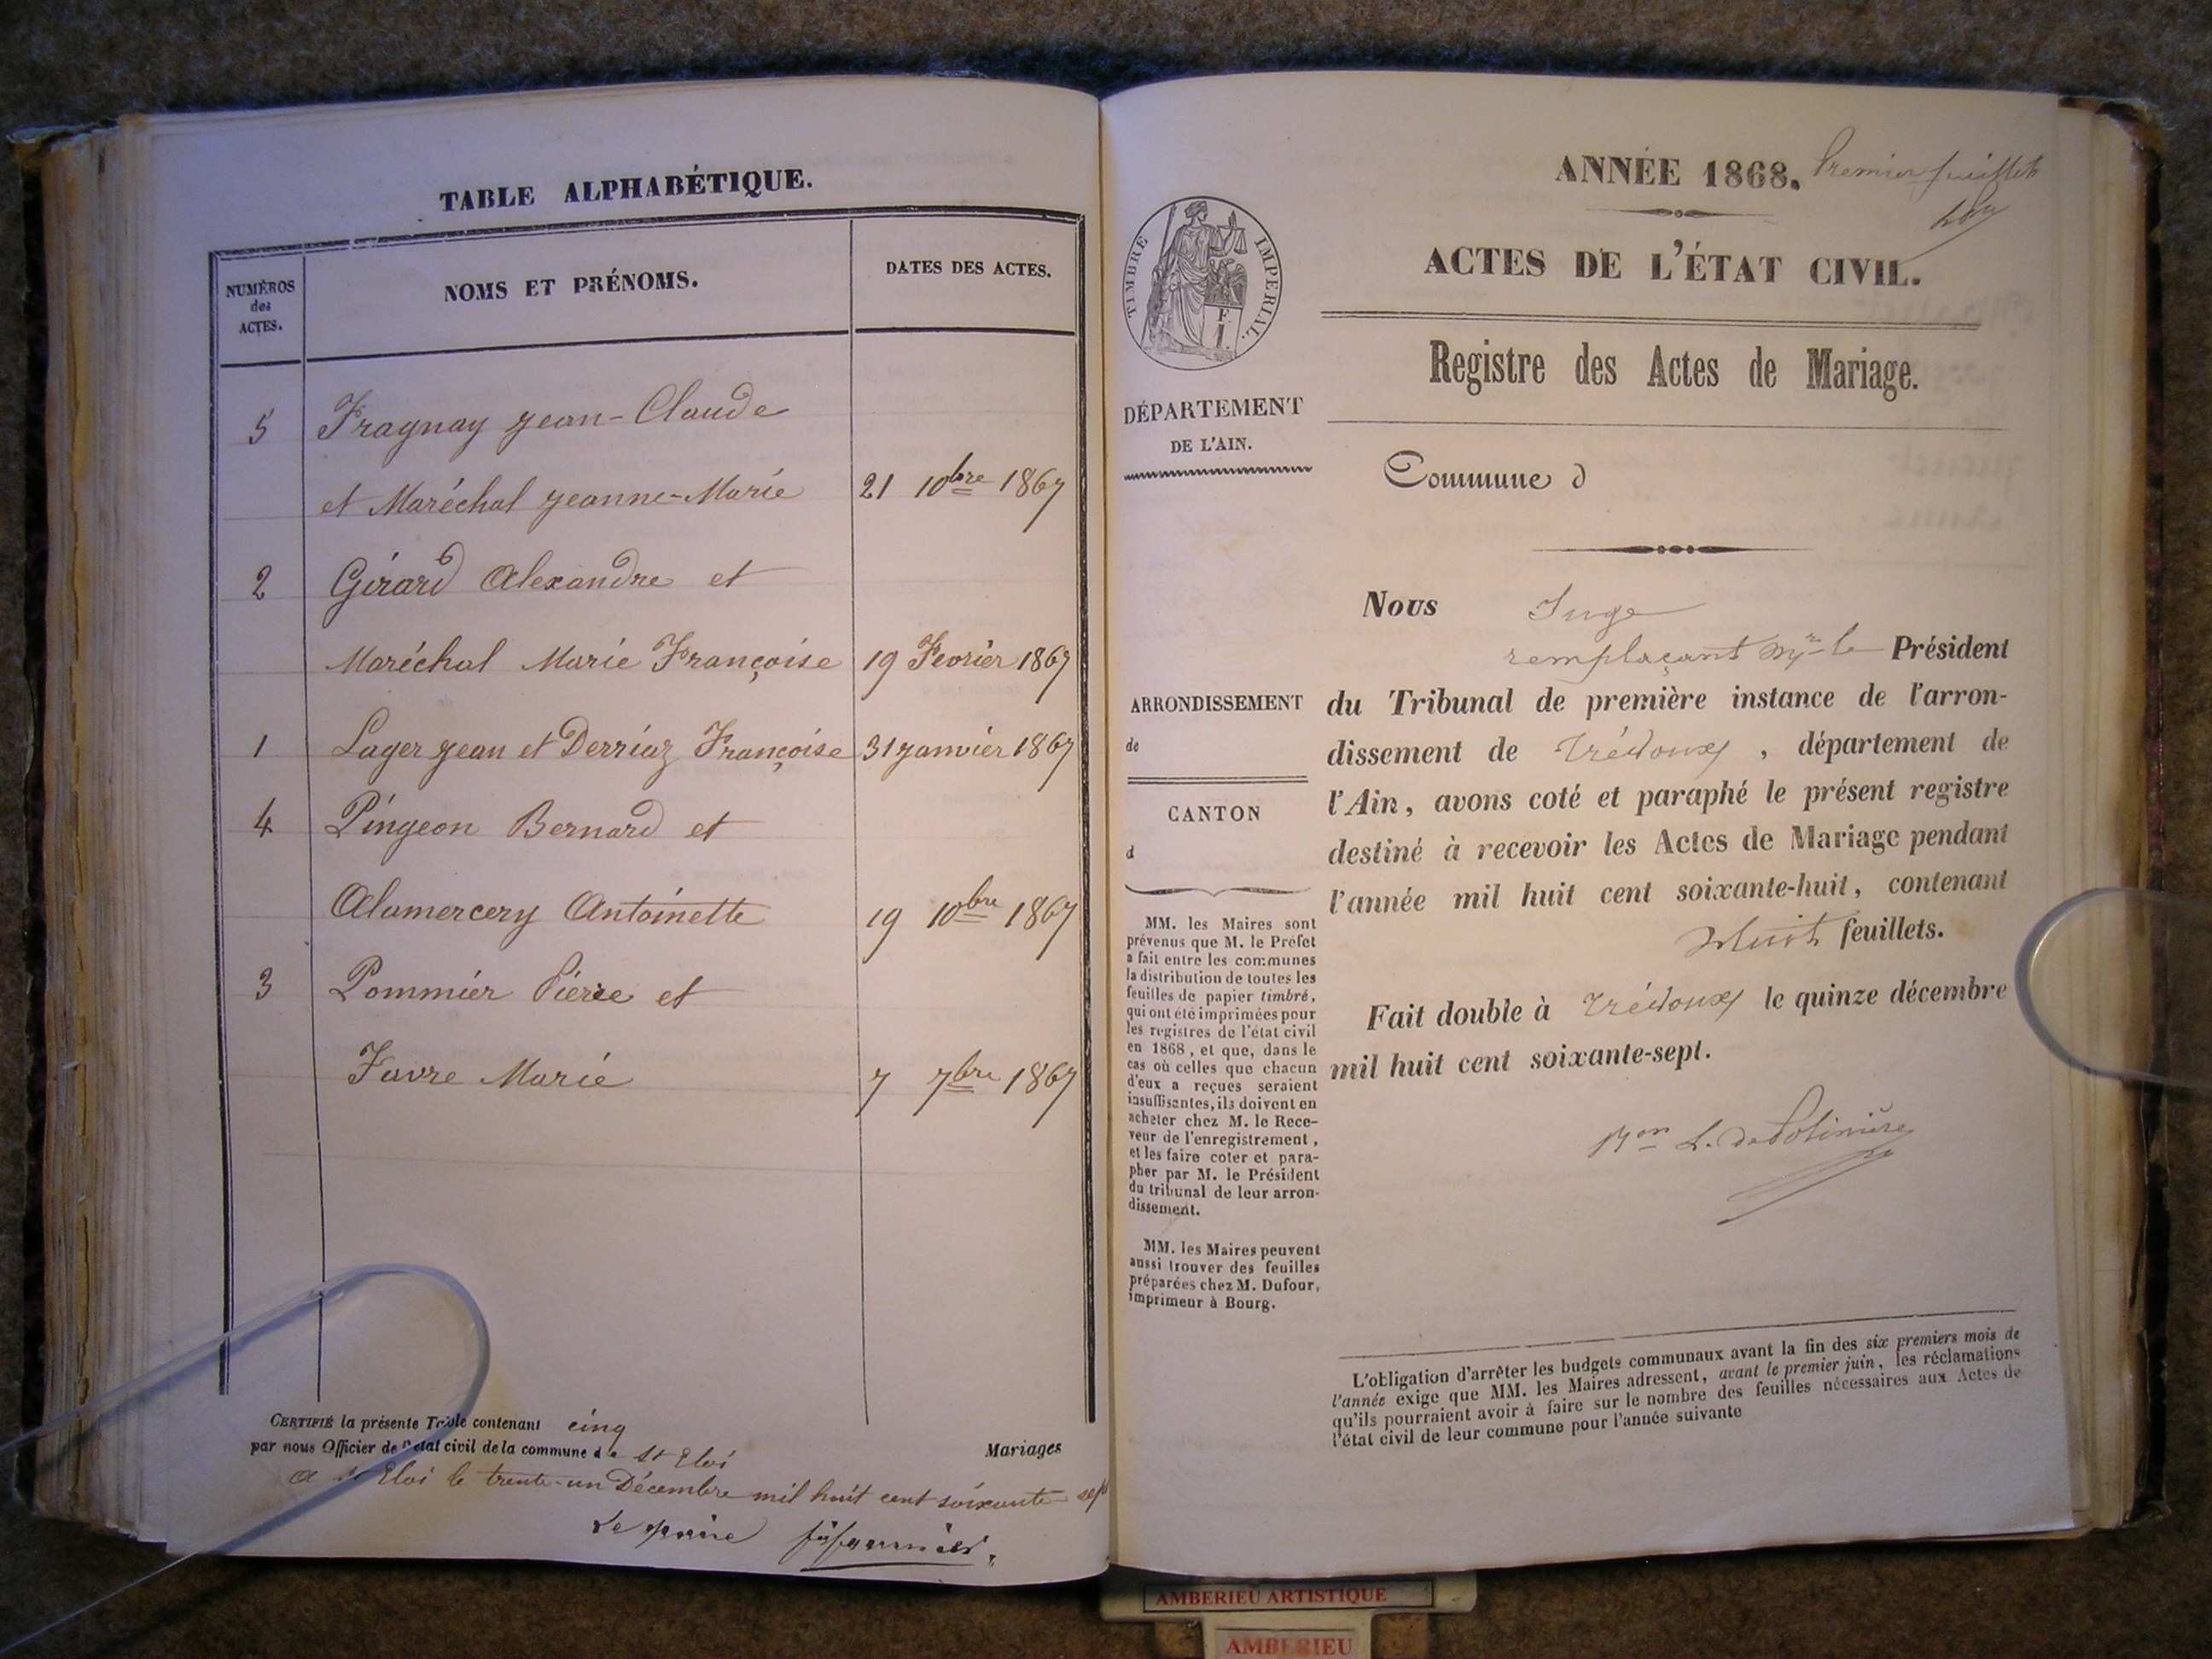 TABLE ALPHABÉTIQUE.
NUMÉROS
des
ACTES.
NOMS ET PRÉNOMS.
DATES DES ACTES.
5 Fragnay jean-Claude
et Maréchal jeanne-Marie 21 10bre 1867
2 Girard Alexandre et
Maréchal Marie Françoise 19 Fevrier 1867
1 Lager jean et Derriaz Françoise 31 janvier 1867
4 Pingeon Bernard et
Alamercery Antoinette 19 10bre 1867
3 Pommier Pierre et
Favre Marie 7 7bre 1867
CERTIFIÉ la présente Table contenant cinq
Mariages
par nous Officier de l'état civil de la commune de St Eloi
A St Eloi le trente-un Décembre mil huit cent soixante-sept
Le maire
ANNÉE 1868. Premier feuillet
ACTES DE L'ÉTAT CIVIL.
Registre des Actes de Mariage.
TIMBRE IMPÉRIAL.
DÉPARTEMENT
DE L'AIN.
Commune d
ARRONDISSEMENT
de
CANTON
d
MM. les Maires sont
prévenus que M. le Préfet
a fait entre les communes
la distribution de toutes les
feuilles de papier timbré,
qui ont été imprimées pour
les registres de l'état civil
en 1868, et que, dans le
cas où celles que chacun
d'eux a reçues seraient
insuffisantes, ils doivent en
acheter chez M. le Rece-
veur de l'enregistrement,
et les faire coter et para-
pher par M. le Président
du tribunal de leur arron-
dissement.
MM. les Maires peuvent
aussi trouver des feuilles
préparées chez M. Dufour,
imprimeur à Bourg.
Nous Juge
remplaçant Mr le Président
du Tribunal de première instance de l'arron-
dissement de Trévoux, département de
l'Ain, avons coté et paraphé le présent registre
destiné à recevoir les Actes de Mariage pendant
l'année mil huit cent soixante-huit, contenant
huit feuillets.
Fait double à Trévoux le quinze décembre
mil huit cent soixante-sept.
Bon L. de Polinière
L'obligation d'arrêter les budgets communaux avant la fin des six premiers mois de
l'année exige que MM. les Maires adressent, avant le premier juin, les réclamations
qu'ils pourraient avoir à faire sur le nombre des feuilles nécessaires aux Actes de
l'état civil de leur commune pour l'année suivante
AMBERIEU ARTISTIQUE
AMBERIEU